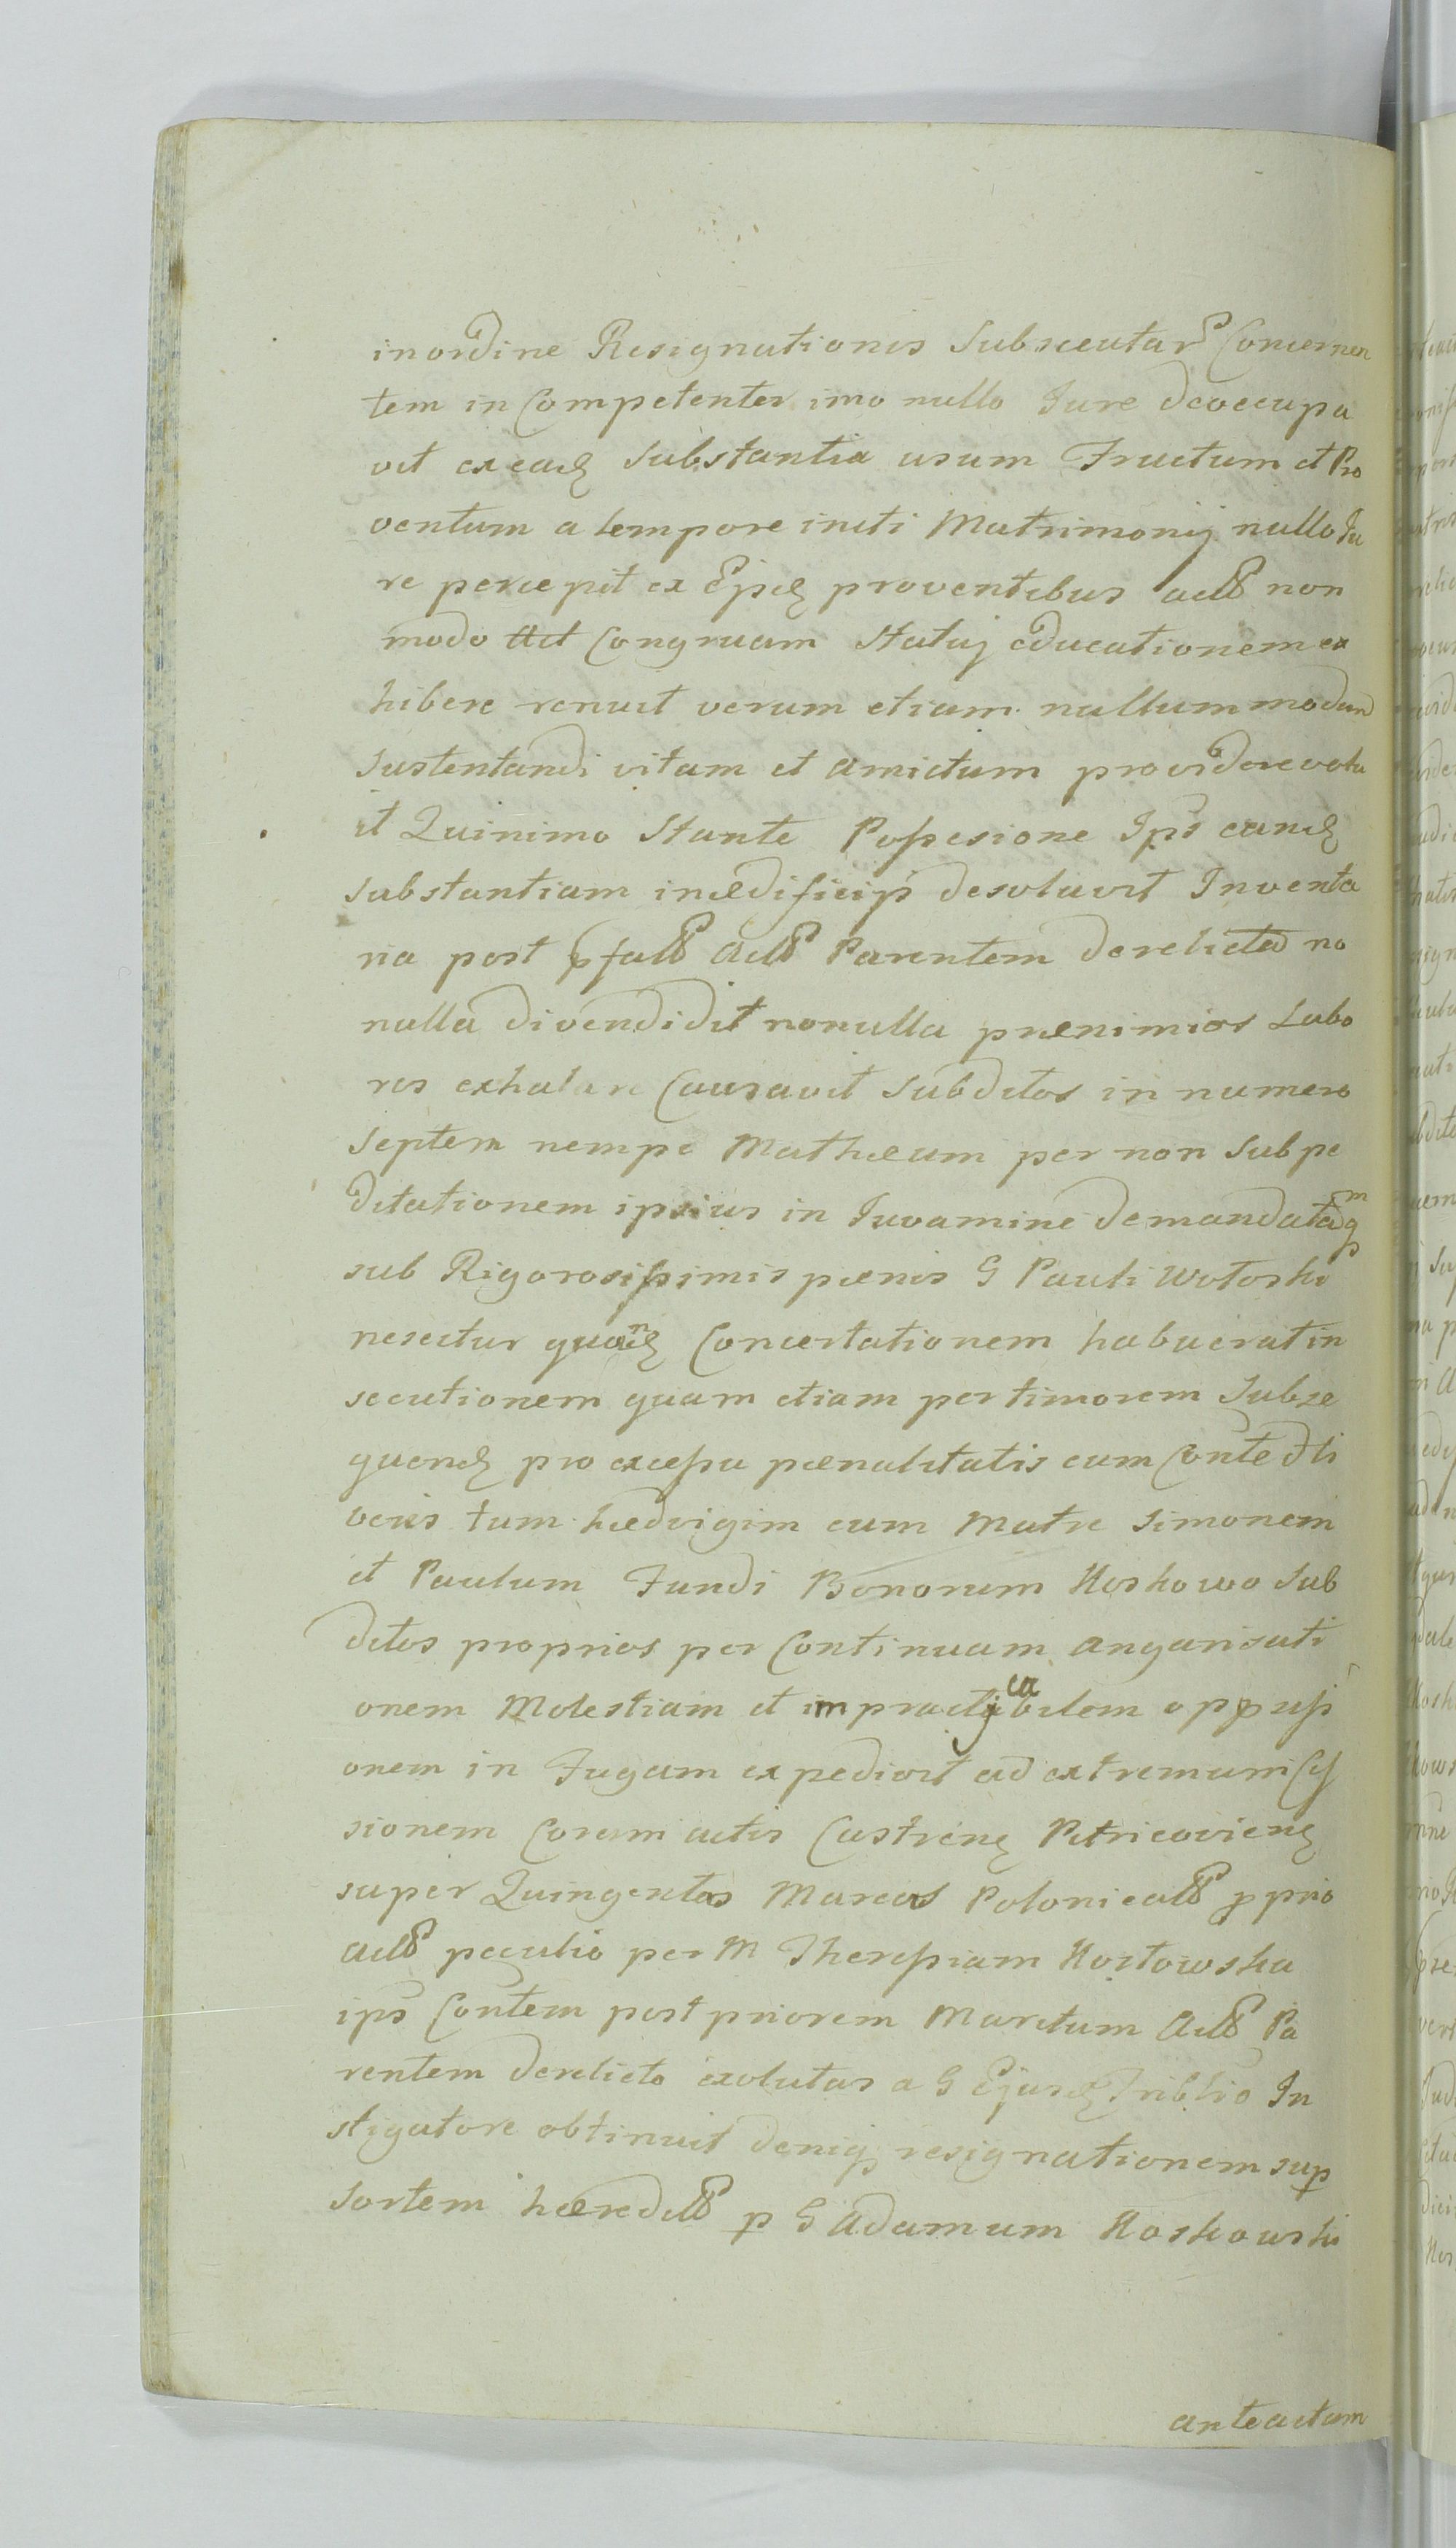 inordine Resignationis Subsecutar Concernen
tem in Competenter imo nullo Jure deoccupa
vit ex eadē Substantia usum Fructum et Pro
ventum a tempore initi Matrimonij nullo Ju
re percepit ex Ejsdē proventibus act non
modo Congruam Statuj educationem ex
hibere renuit verum etiam nullum modum
sustentandi vitam et amictum providere volu
it Quinimo Stante Possesione Ips eandē
substantiam inædificijs desolavit Inventa
ria post Act Parentem derelicta no
nulla divendidit nonulla prænimios Labo
res exhalare Causavit Subditos in numero
septem nempe Mathæum per non Subpe
ditationem ipsius in Juvamine demandatam
sub Rigorosissimis pænis G Pauli Wołoski
nescitur quandē Concertationem habuerat in
secutionem quam etiam per timorem Subse
quendē pro excessu pænalitatis cum Conte
veris tum hædvigim cum Matre Simonem
et Paulum Fundi Bonorum Koskowo Sub
ditos proprios per Continuam angarisati
onem Molestiam et impracticabilem oppressi
onem in Fugam expedivit ad extremum Ces
sionem Coram actis Castrenē Petricovienē
super Quingentas Marcas Polonical pprio
act peculio per M Theressiam Kortowska
ips Contem post priorem Maritum Act Pa
rentem derelicto exolutas a G Ejusdē Triblio In
stigatore obtinuit deniq resignationem sup
Sortem hæredit p G Adamum Koskowski
anteactum